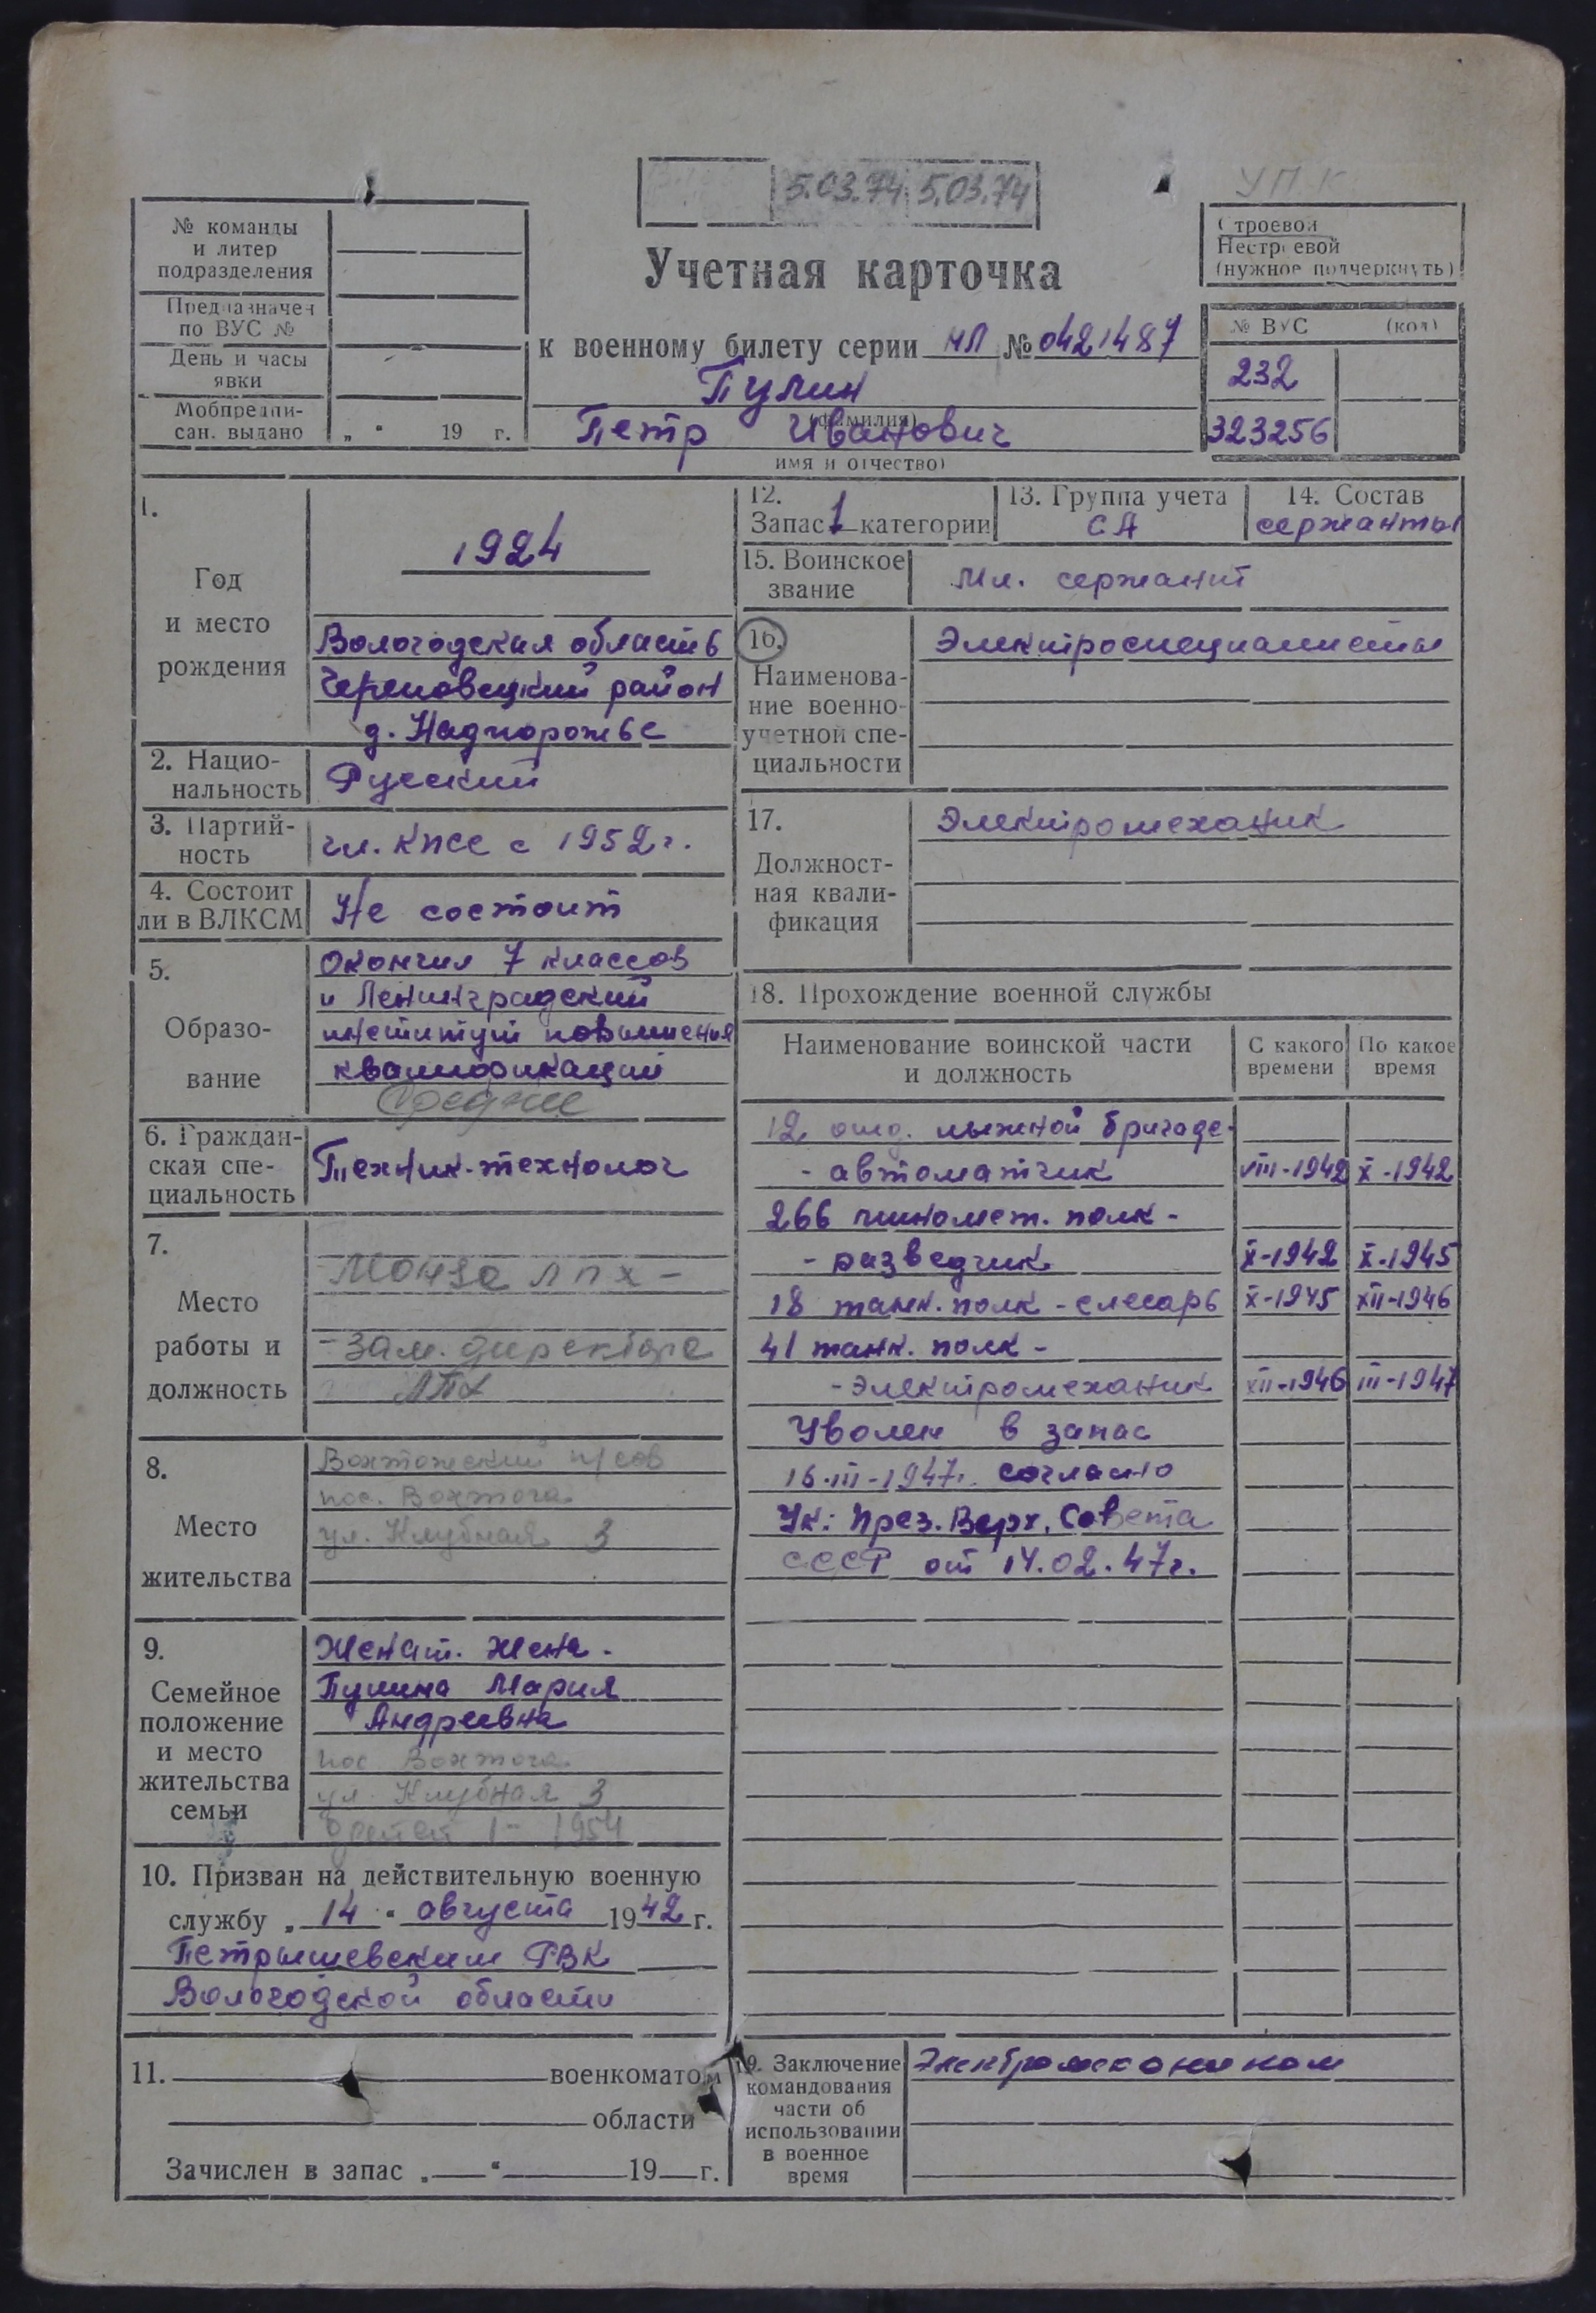 5.03.74 5.03.74
УПК
№ команды
и литер
подразделения
Предназначен
по ВУС №
День и часы
явки
Мобпредпи-
сан. выдано
„ “ 19 г.
Учетная карточка
к военному билету серии НЛ № 0421487
Пулин
(фамилия)
Петр Иванович
имя и отчество)
Строевой
Нестроевой
(нужное подчеркнуть)
№ ВУС (код)
232
323256
1.
Год
и место
рождения
1924
Вологодская область
Череповецкий район
д. Надпорожье
2. Нацио-
нальность
Русский
3. Партий-
ность
чл. КПСС с 1952 г.
4. Состоит
ли в ВЛКСМ
Не состоит
5.
Образо-
вание
Окончил 7 классов
и Ленинградский
институт повышения
квалификации
Среднее
6. Граждан-
ская спе-
циальность
Техник-технолог
7.
Место
работы и
должность
Монза ЛПХ -
- зам. директора
ЛПХ
8.
Место
жительства
Вохтожский п/сов
пос. Вохтога
ул. Клубная 3
9.
Семейное
положение
и место
жительства
семьи
Женат. Жена -
Пулина Мария
Андреевна
пос Вохтога
ул. Клубная 3
1 - 1954
10. Призван на действительную военную
службу „ 14 “ августа 1942 г.
Петришевским РВК
Вологодской области
11. военкоматом
области
Зачислен в запас „ “ 19 г.
12.
Запас 1 категории
13. Группа учета
СА
14. Состав
сержанты
15. Воинское
звание
Мл. сержант
16.
Наименова-
ние военно-
учетной спе-
циальности
Электроспециалисты
17.
Должност-
ная квали-
фикация
Электромеханик
18. Прохождение военной службы
Наименование воинской части
и должность
С какого
времени
По какое
время
12 отд. лыжной бригаде-
- автоматчик VIII-1942 X-1942
266 миномет. полк -
- разведчик X-1942 X-1945
18 танк. полк - слесарь X-1945 XII-1946
41 танк. полк -
- электромеханик XII-1946 III-1947
Уволен в запас
16-III-1947г. согласно
Ук: През. Верх. Совета
СССР от 14.02.47г.
19. Заключение
командования
части об
использовании
в военное
время
Электромехаником